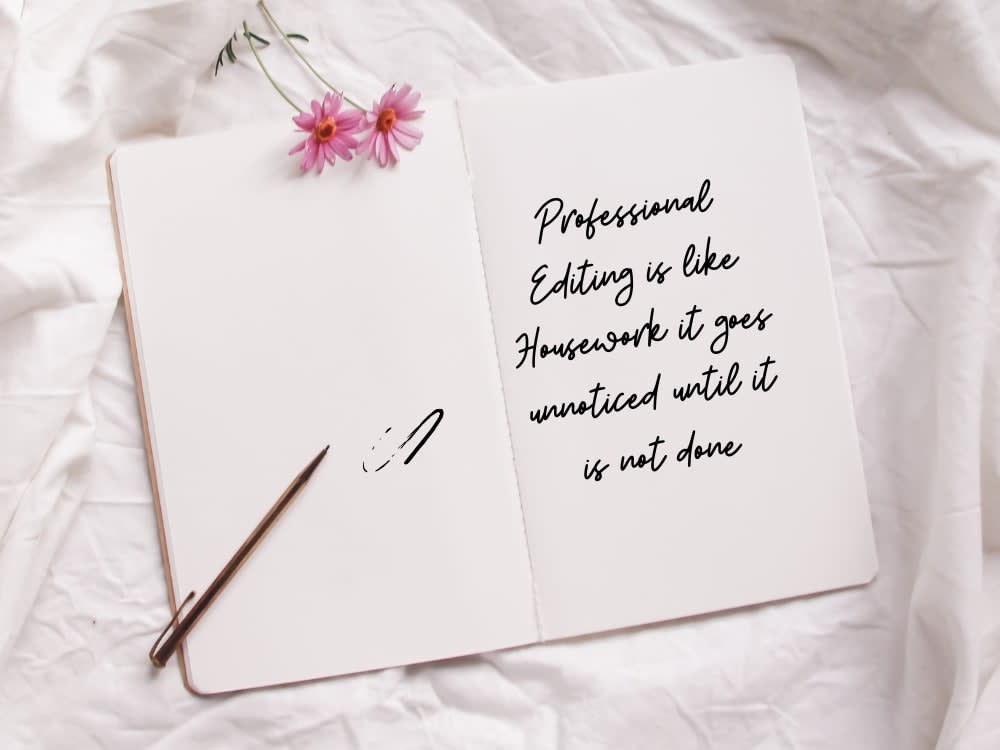 Professional
Editing is like
Housework it goes
unnoticed until it
is not done